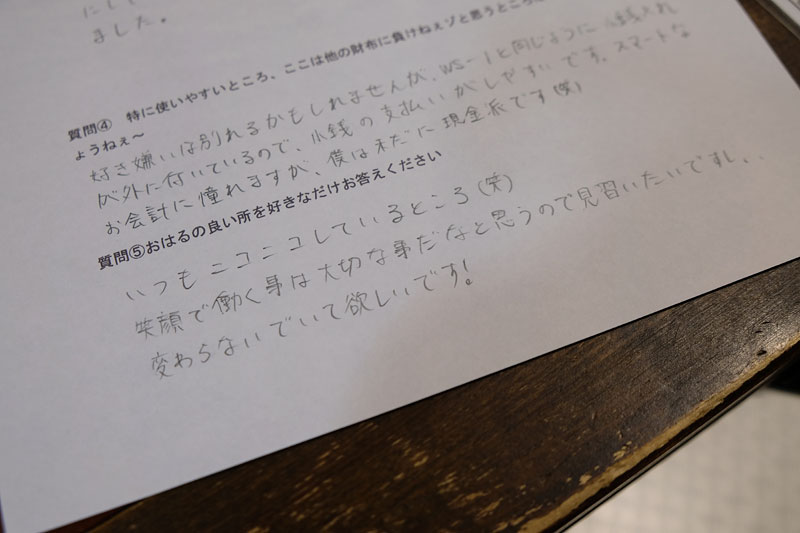 にして
ました。
質問④ 特に使いやすいところ、ここは他の財布に負けねぇゾと思うところに
ょうねぇ～
好き嫌いは別れるかもしれませんが、WS-1と同じように小銭入れ
が外に付いているので、小銭の支払いがしやすいです。スマートな
お会計に憧れますが、僕は未だに現金派です(笑)
質問⑤おはるの良い所を好きなだけお答えください
いつもニコニコしているところ(笑)
笑顔で働く事は大切な事だなと思うので見習いたいですし、、
変わらないでいて欲しいです!